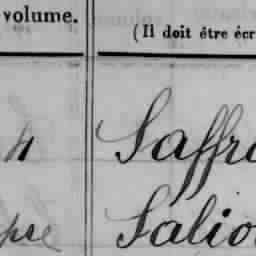 volume.
(Il doit être écr
4 Saffr
pre Salio